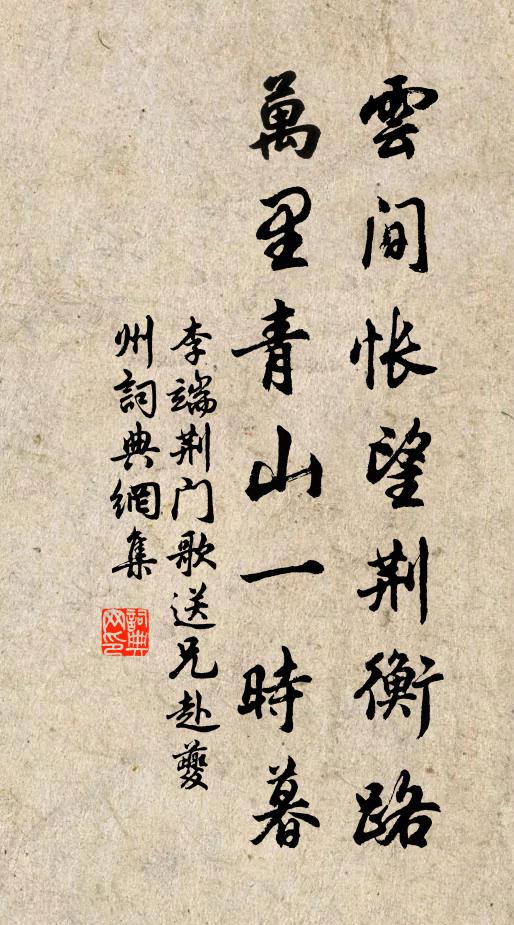 雲间怅望荆衡路
萬里青山一時暮
李端荆门歌送兄赴夔
州詞典網集
詞典网印